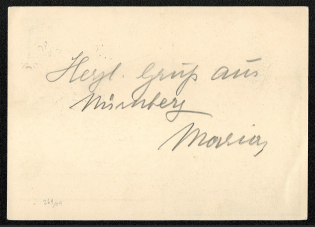 Herzl. Gruß aus
Nürnberg
Maria